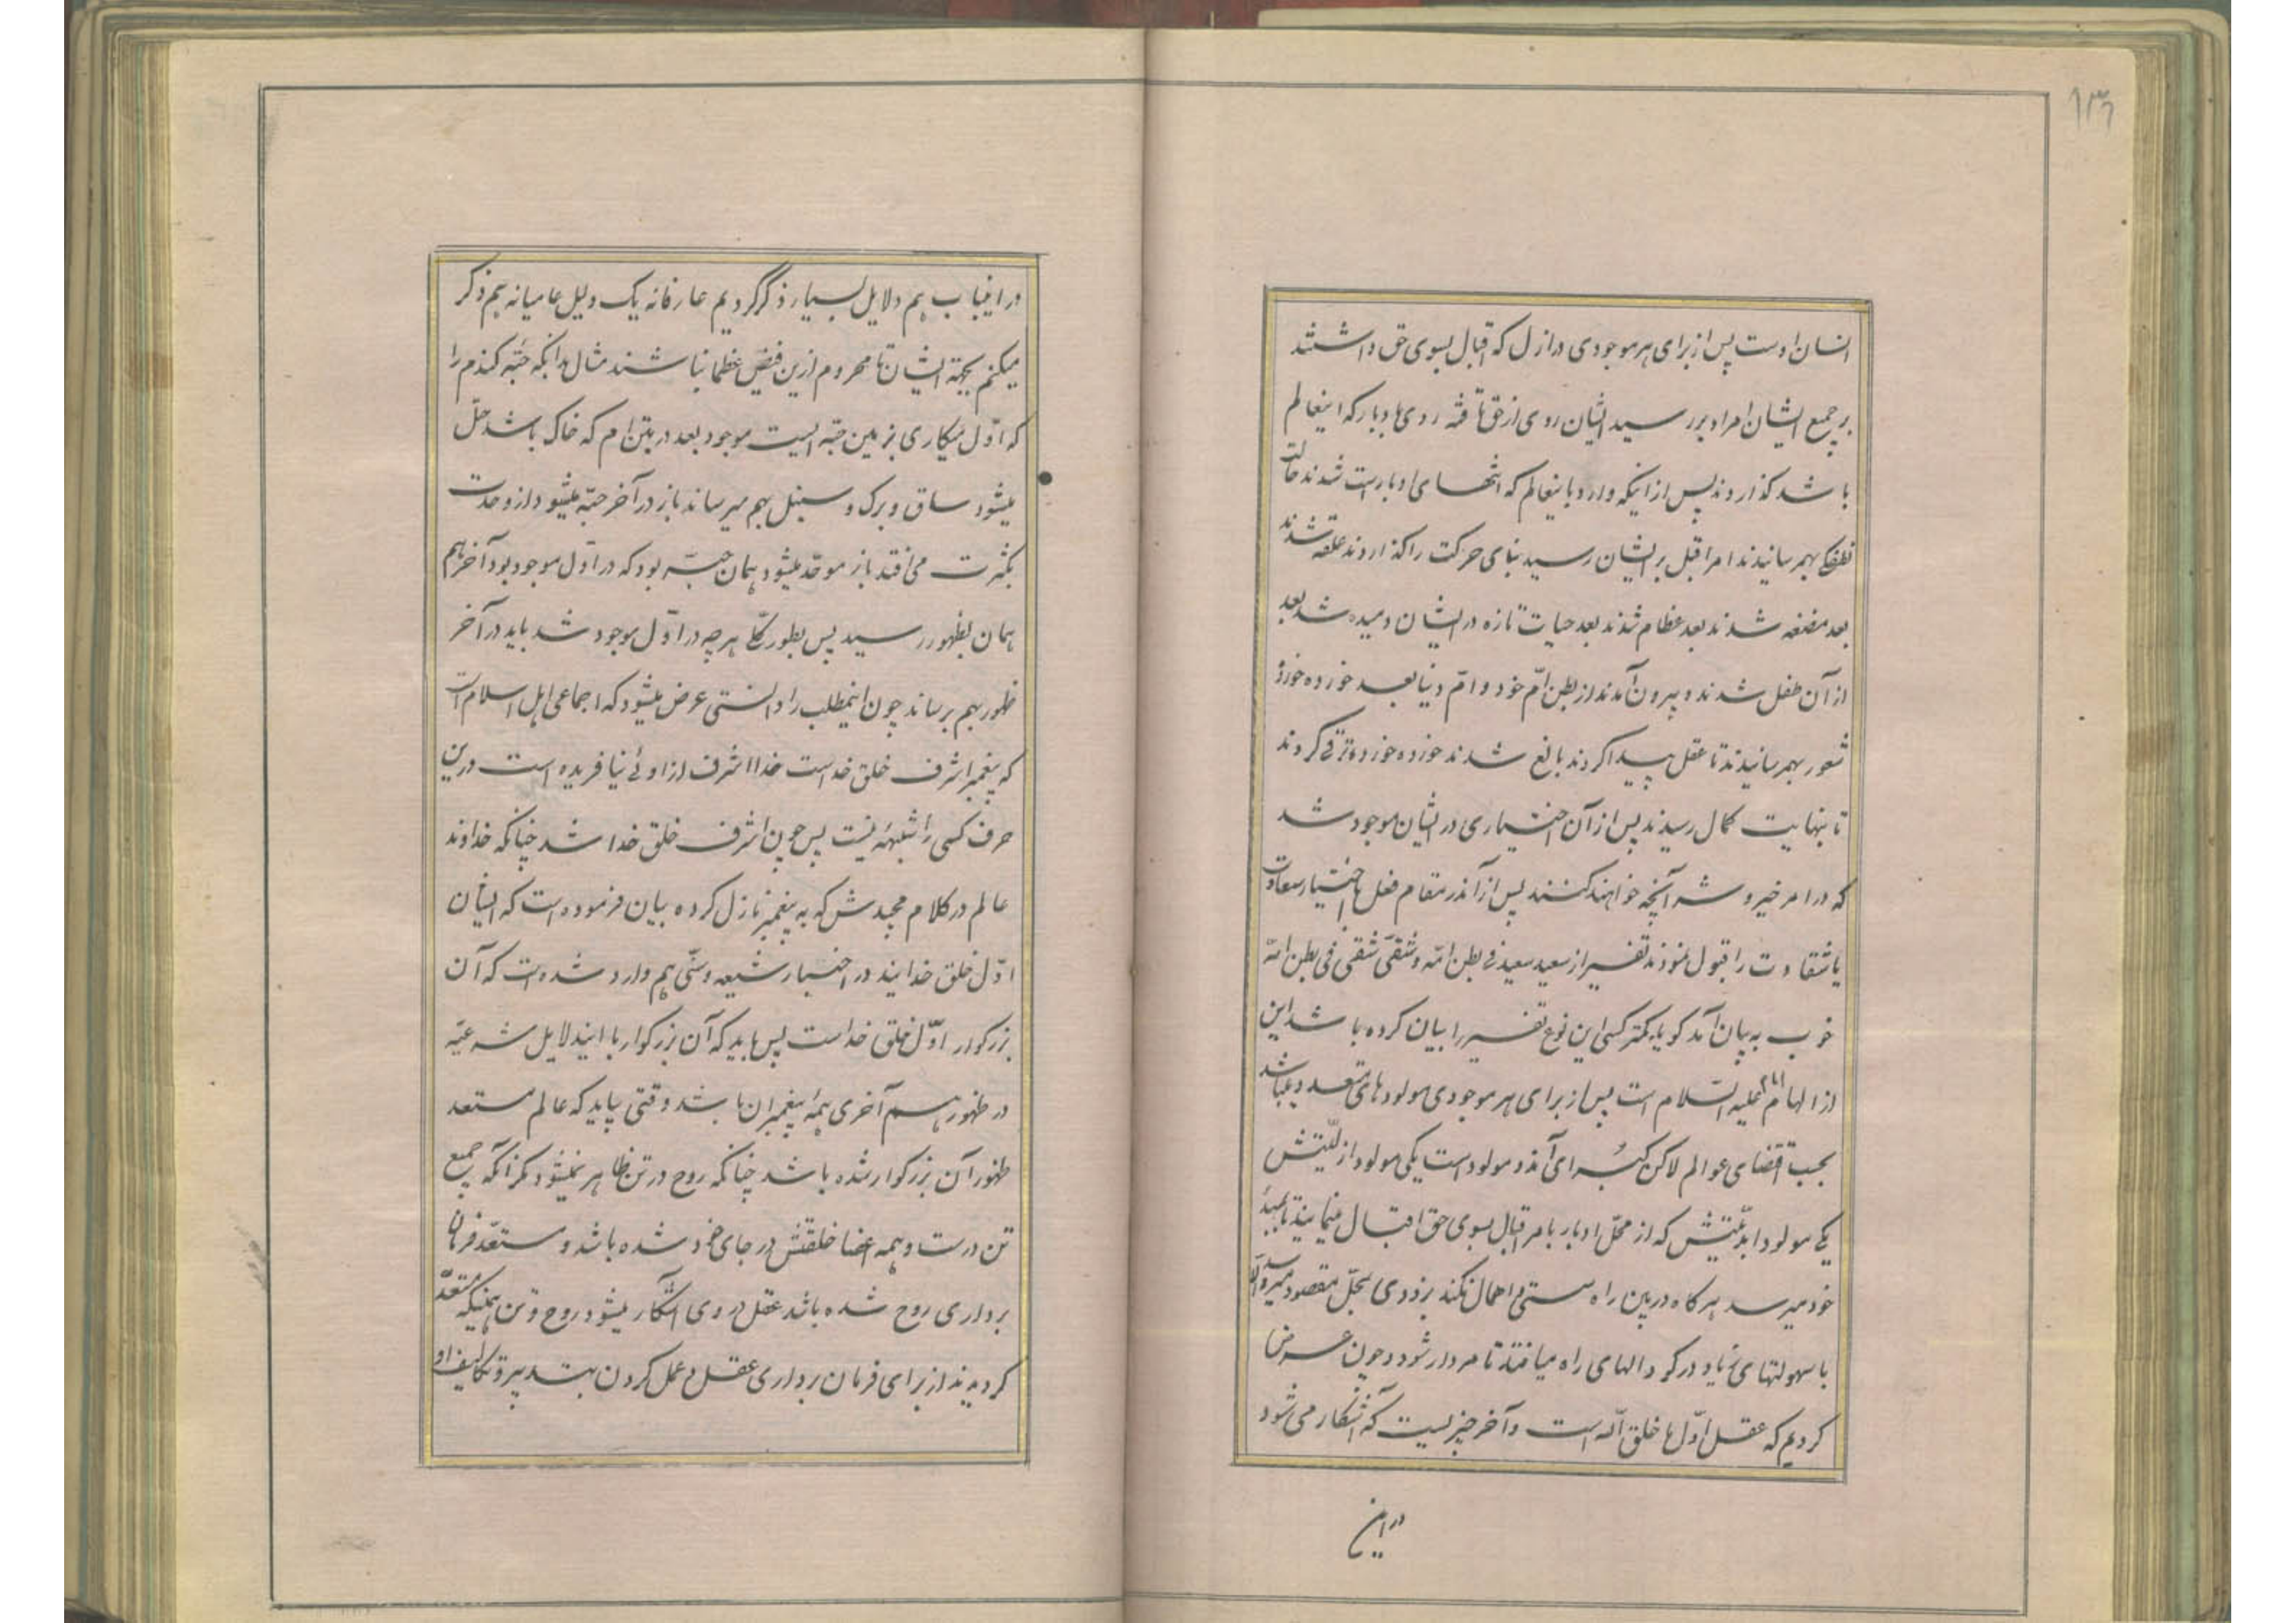 ۱۳۶
انسان اوست پس از برای هر موجودی در ازل که اقبال بسوی حق داشتند
بر جمیع ایشان امر ادبر رسید ایشان روی از حق تافته روی بادبار که اینعالم
باشد گذاردند پس از اینکه وارد باینعالم که انتهای ادبار است شدند حالت
نطفگی بهم رسانیدند امر اقبل بر ایشان رسید بنای حرکت را گذاردند علقه شدند
بعد مضغه شدند بعد عظام شدند بعد حیات تازه در ایشان دمیده شد بعد
از آن طفل شدند و بیرون آمدند از بطن امّ خود و امّ دنیا بعد خورده خورده
شعور بهم رسانیدند تا عقل پیدا کردند بالغ شدند خورده خورده ترقی کردند
تا بنهایت کمال رسیدند پس از آن اختیاری در ایشان موجود شد
که در امر خیر و شر آنچه خواهند کنند پس از آن در مقام فعل باختیار سعادت
یا شقاوت را قبول نمودند تفسیر از سعید سعید فی بطن امّه و شقی شقی فی بطن امّه
خوب به بیان آمد گویا کمتر کسی این نوع تفسیر را بیان کرده باشد این
از الهام امام علیه السّلام است پس از برای هر موجودی مولودهای متعدد میباشد
بحسب اقتضای عوالم لاکن کبرای آن دو مولود است یکی مولود ازلیّتش
یکی مولود ابدیّتش که از محلّ ادبار بامر اقبال بسوی حق اقبال مینمایند تا بمبدأ
خود میرسد هر گاه در بین راه سستی و اهمال نکند بزودی بمحلّ مقصود میرسد و الا
با سهولتهای زیاد در گودالهای راه میافتند تا مردار شود و چون عرض
کردیم که عقل اوّل ما خلق الله است و آخر چیزیست که آشکار می شود
در این
در اینباب هم دلایل بسیار ذکر کردیم عارفانه یک دلیل عامیانه هم ذکر
میکنم بجهة ایشان تا محروم ازین فیض عظما نباشند مثال بدانکه حبّه گندم را
که اوّل میکاری بزمین حبّه ایست موجود بعد در بتن ام که خاک باشد حلّ
میشود ساق و برگ و سنبل بهم میرساند باز در آخر حبّه میشود از وحدت
بکثرت می افتد باز موحّد میشود همان حبّه بود که در اوّل موجود بود آخر هم
همان بظهور رسید پس بطور کلّی هر چه در اوّل موجود شد باید در آخر
ظهور بهم برساند چون اینمطلب را دانستی عرض میشود که اجماعی اهل اسلام است
که پیغمبر اشرف خلق خداست خدا اشرف از اوئی نیافریده است درین
حرف کسی را شبهه نیست پس چون اشرف خلق خدا شد چنانکه خداوند
عالم در کلام مجیدش که به پیغمبر نازل کرده بیان فرموده است که ایشان
اوّل خلق خدایند در اخبار شیعه و سنّی هم وارد شده است که آن
بزرگوار اوّل خلق خداست پس باید که آن بزرگوار با ایندلایل شرعیّه
در ظهور هم آخری همهٔ پیغمبران باشد وقتی بیاید که عالم مستعد
ظهور آن بزرگوار شده باشد چنانکه روح در تن ظاهر نمیشود مگر آنکه جمیع
تن درست و همه اعضا خلقتش در جای خود شده باشد و مستعدّ فرمان
برداری روح شده باشد عقل در وی آشکار میشود روح و تن همینکه مستعدّ
کردیدند از برای فرمان برداری عقل و عمل کردن بتدبیر و تکالیف او